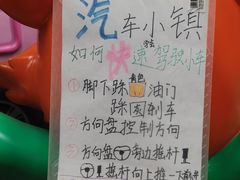 汽车小镇
如何快速驾驶小车
方法
①脚下踩黄色油门
踩圆刹车
②方向盘控制方向
③方向盘旁边推杆
推杆向上推一下